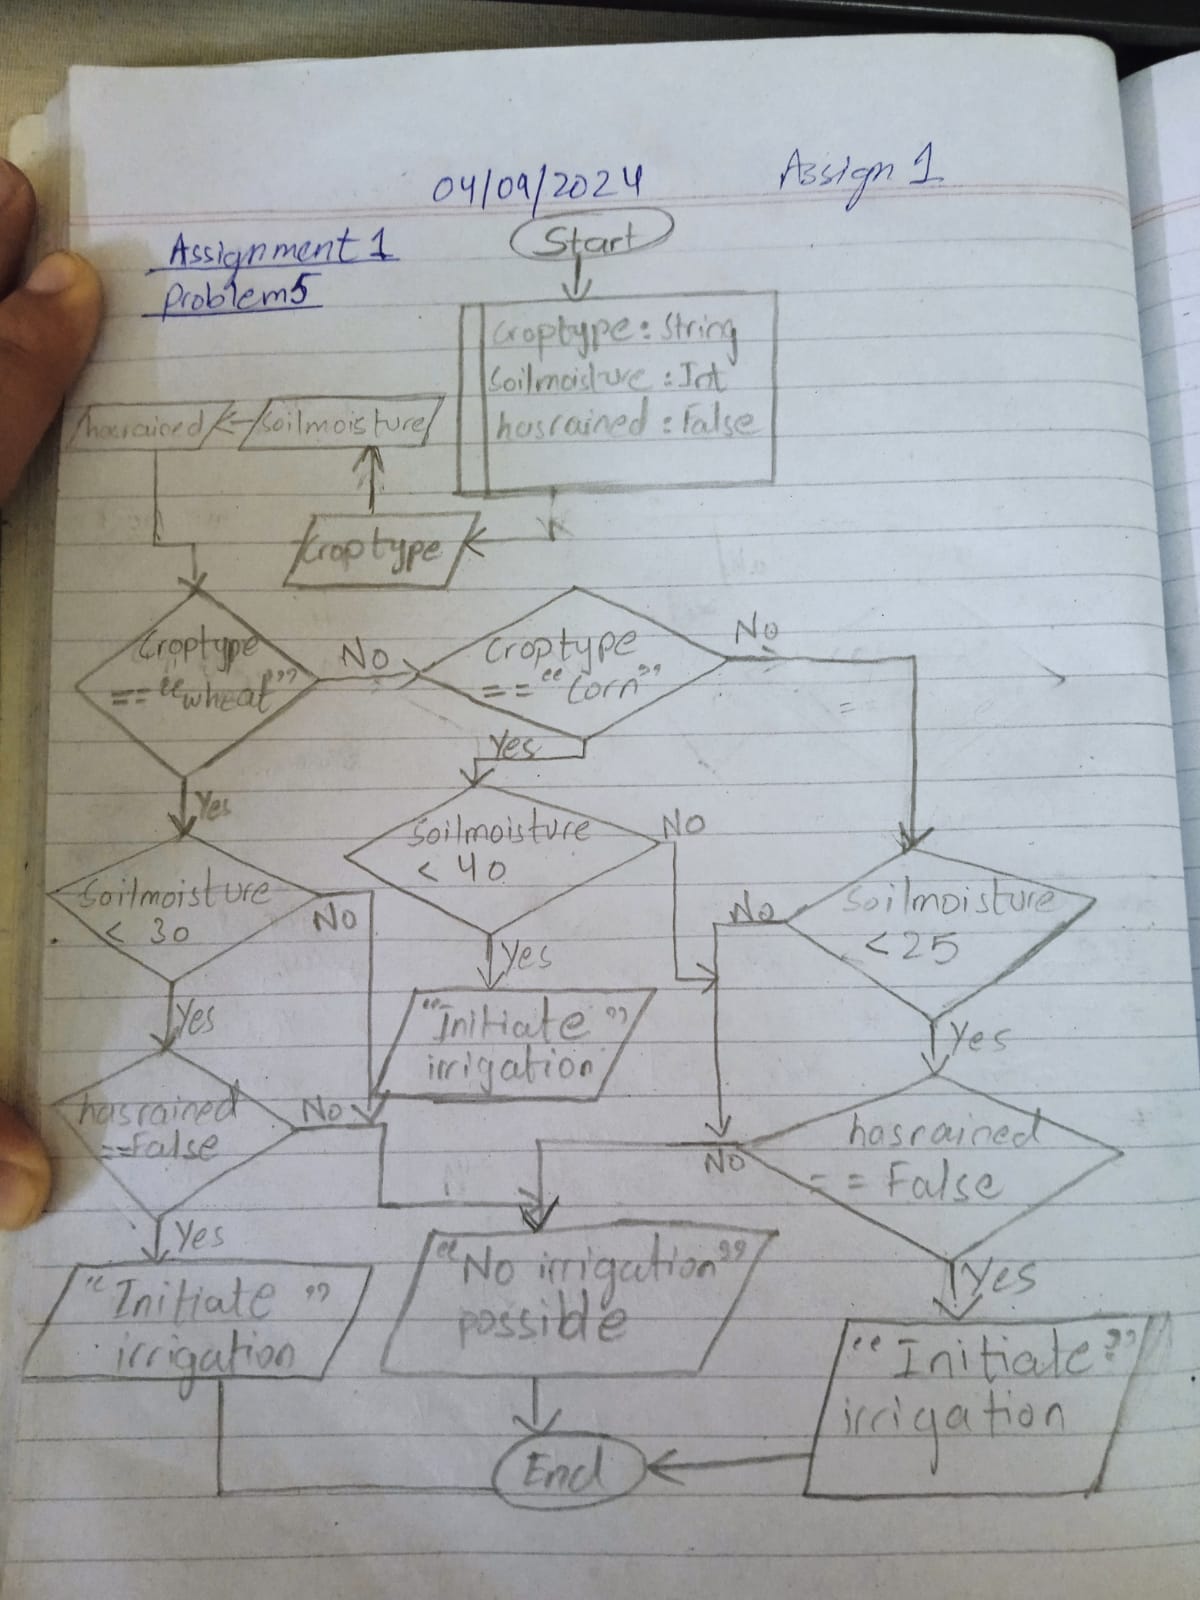 04/09/2024 Assign 1
Assignment 1
Problem 5
Start
Croptype: String
Soilmoisture : Int
hasrained : False
hasrained
Soilmoisture
Croptype
Croptype
== "wheat"
No
Croptype
== "Corn"
No
Yes
Yes
Soilmoisture
< 30
No
Soilmoisture
< 40
No
No
Soilmoisture
< 25
Yes
Yes
Yes
hasrained
==False
No
"Initiate"
irrigation
No
hasrained
== False
Yes
Yes
"Initiate"
irrigation
"No irrigation"
possible
"Initiate"
irrigation
End